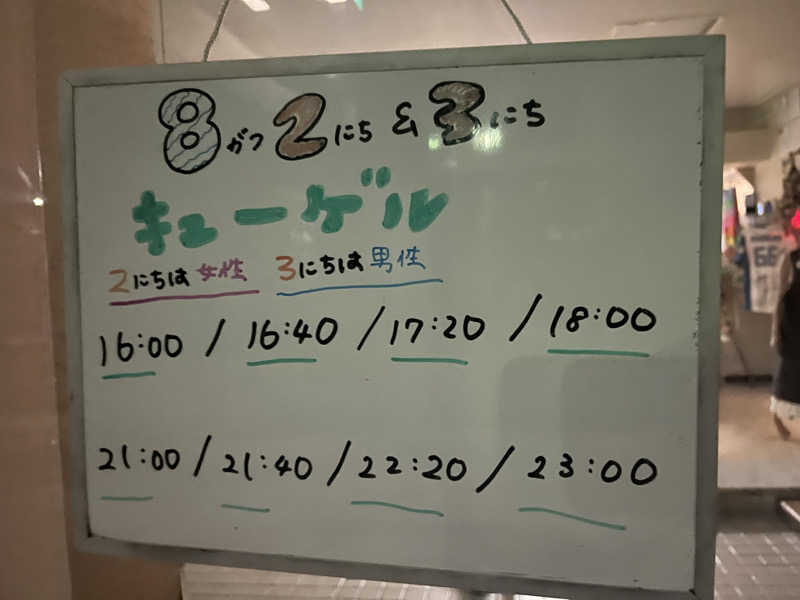 8がつ2にち&3にち
キューゲル
2にちは女性 3にちは男性
16:00 / 16:40 / 17:20 / 18:00
21:00 / 21:40 / 22:20 / 23:00
66